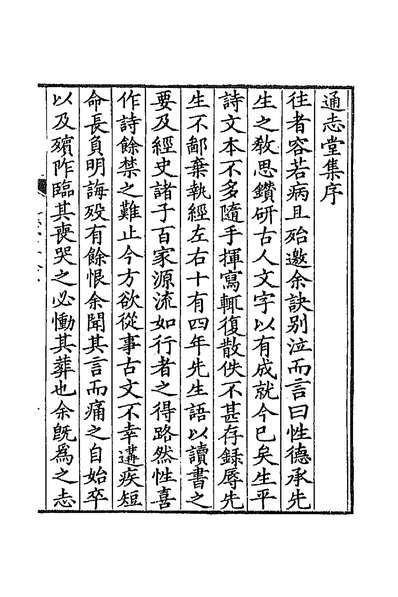 通志堂集序
往者容若病且殆邀余訣別泣而言曰性德承先
生之教思鑽研古人文字以有成就今已矣生平
詩文本不多隨手揮寫輒復散佚不甚存錄辱先
生不鄙棄執經左右十有四年先生語以讀書之
要及經史諸子百家源流如行者之得路然性喜
作詩餘禁之難止今方欲從事古文不幸遘疾短
命長負明誨殁有餘恨余聞其言而痛之自始卒
以及殯阼臨其喪哭之必慟其葬也余既為之志